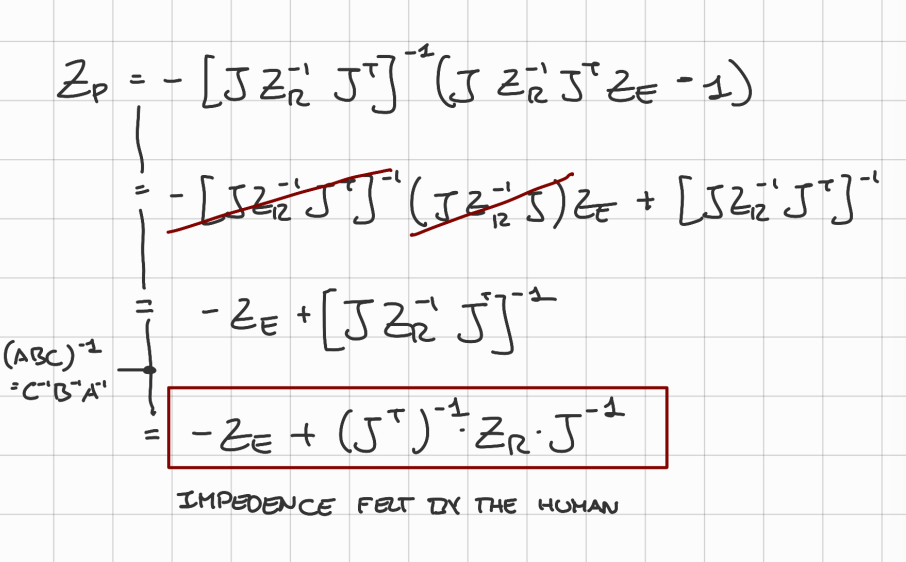 Z_P = - [J Z_R^-1 J^T]^-1 (J Z_R^-1 J^T Z_E - 1)
= - [J Z_R^-1 J^T]^-1 (J Z_R^-1 J) Z_E + [J Z_R^-1 J^T]^-1
= - Z_E + [J Z_R^-1 J^T]^-1
(ABC)^-1
= C^-1 B^-1 A^-1
= - Z_E + (J^T)^-1 · Z_R · J^-1
IMPEDENCE FELT BY THE HUMAN